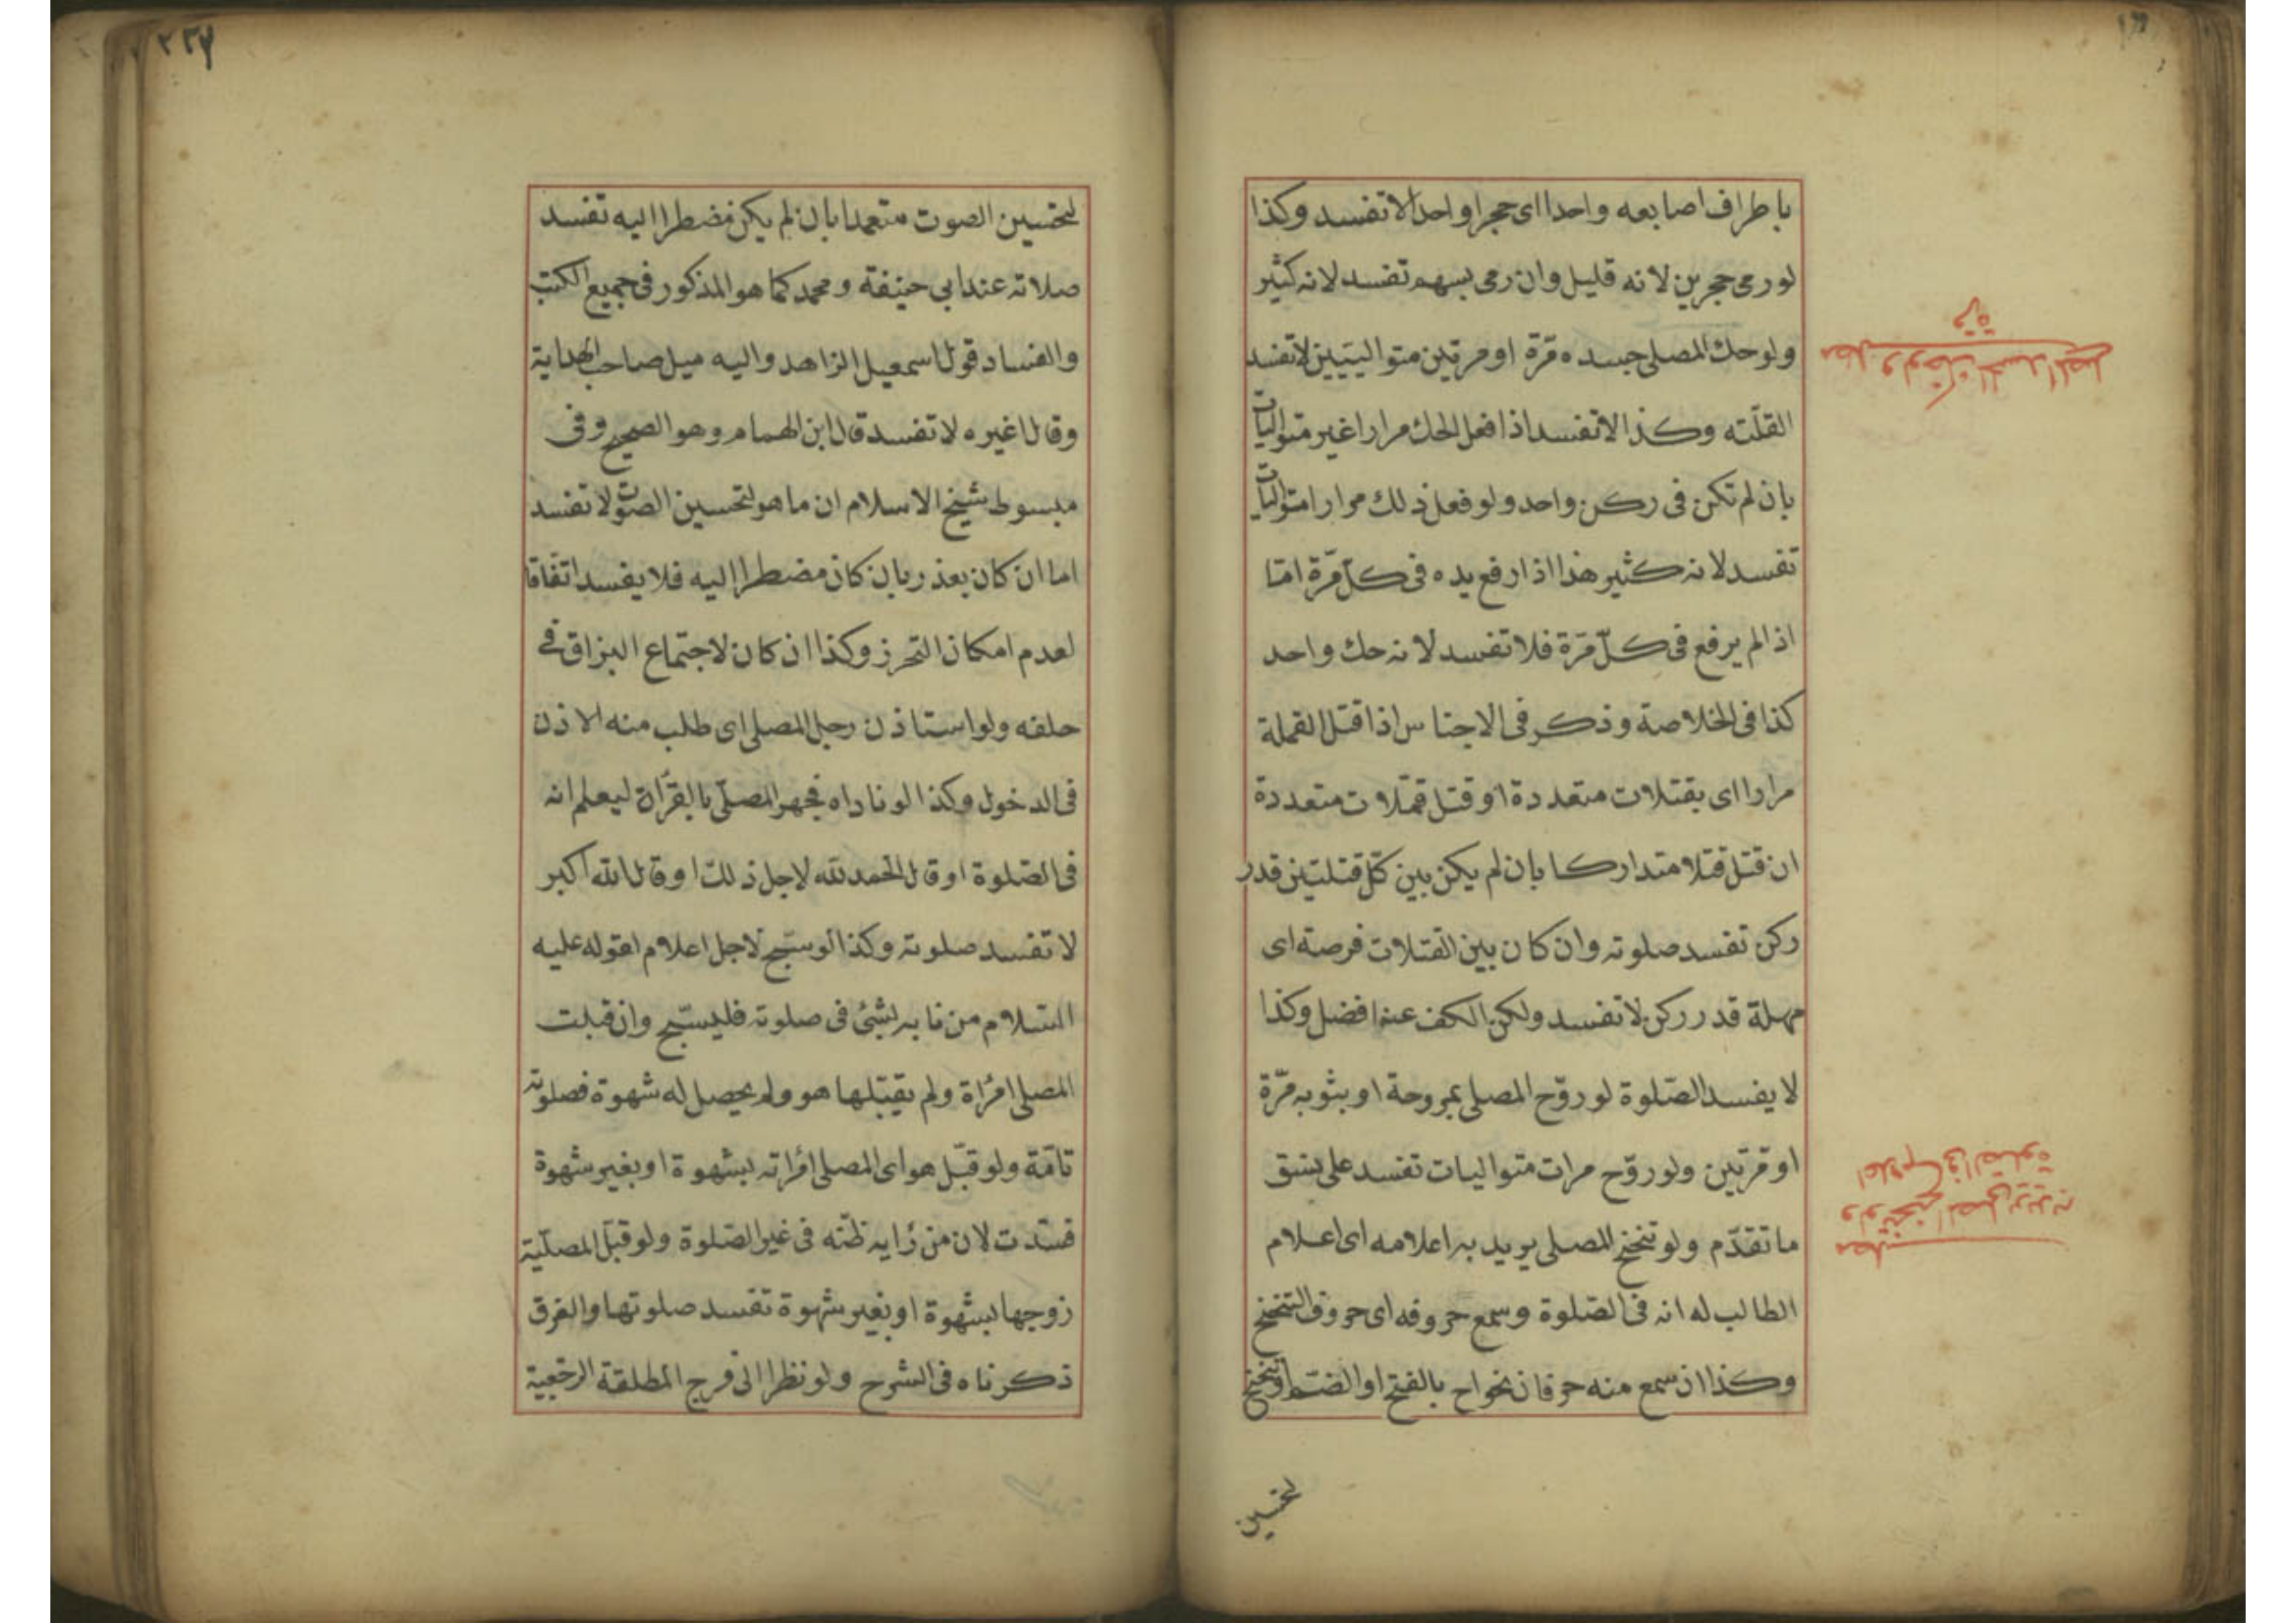 باطراف اصابعه واحدا اى حجرا واحدا لا تفسد وكذا
لو رمى حجرين لانه قليل وان رمى بسهم تفسد لانه كثير
ولو حك المصلى جسده مرّة او مرتين متواليتين لا تفسد
القلّته وكذا لا تفسد اذا فعل الحك مرارا غير متواليات
بان لم تكن فى ركن واحد ولو فعل ذلك مرارا متواليات
تفسد لانه كثير هذا اذا رفع يده فى كلّ مرّة امّا
اذا لم يرفع فى كلّ مرّة فلا تفسد لانه حك واحد
كذا فى الخلاصة وذكر فى الاجناس اذا قتل القملة
مرارا اى بقتلات متعددة او قتل قملات متعددة
ان قتل قتلا متداركا بان لم يكن بين كلّ قتلتين قدر
ركن تفسد صلوته وان كان بين القتلات فرصة اى
مهلة قدر ركن لا تفسد ولكن الكف عنه افضل وكذا
لا يفسد الصّلوة لو روّح المصلى بمروحة او بثوبه مرّة
او مرّتين ولو روّح مرات متواليات تفسد على نسق
ما تقدّم ولو تنحنح المصلى يريد به اعلامه اى اعلام
الطالب له انه فى الصّلوة وسمع حروفه اى حروف التنحنح
وكذا ان سمع منه حرفان نحو اح بالفتح او الضّم او تنحنح
لتحسين
مطلب ولو حك المصلى الجسد
مرة
مطلب
ولو تنحنح المصلى يريد به
اعلام انه فى الصلوة
٢٢٧
لتحسين الصوت متعمدا بان لم يكن مضطرا اليه تفسد
صلاته عند ابى حنيفة ومحمد كما هو المذكور فى جميع الكتب
والفساد قول اسمعيل الزاهد واليه ميل صاحب الهداية
وقال غيره لا تفسد قال ابن الهمام وهو الصحيح وفى
مبسوط شيخ الاسلام ان ما هو لتحسين الصوت لا تفسد
اما ان كان بعذر بان كان مضطرا اليه فلا يفسد اتفاقا
لعدم امكان التحرز وكذا ان كان لاجتماع البزاق فى
حلقه ولو استاذن رجل المصلى اى طلب منه الاذن
فى الدخول وكذا لو ناداه فجهر المصلّى بالقرأة ليعلم انه
فى الصّلوة او قال الحمد لله لاجل ذلك او قال الله اكبر
لا تفسد صلوته وكذا لو سبّح لاجل اعلام لقوله عليه
السّلام من نابه لشئ فى صلوته فليسبّح وان قبلت
المصلى امرأة ولم يقبّلها هو ولم يحصل له شهوة فصلوته
تامّة ولو قبّل هو اى المصلى امرأته بشهوة او بغير شهوة
فسدت لان من رآيه ظنّه فى غير الصّلوة ولو قبّل المصلّية
زوجها بشهوة او بغير شهوة تفسد صلوتها والفرق
ذكرناه فى الشرح ولو نظر الى فرج المطلقة الرجعية